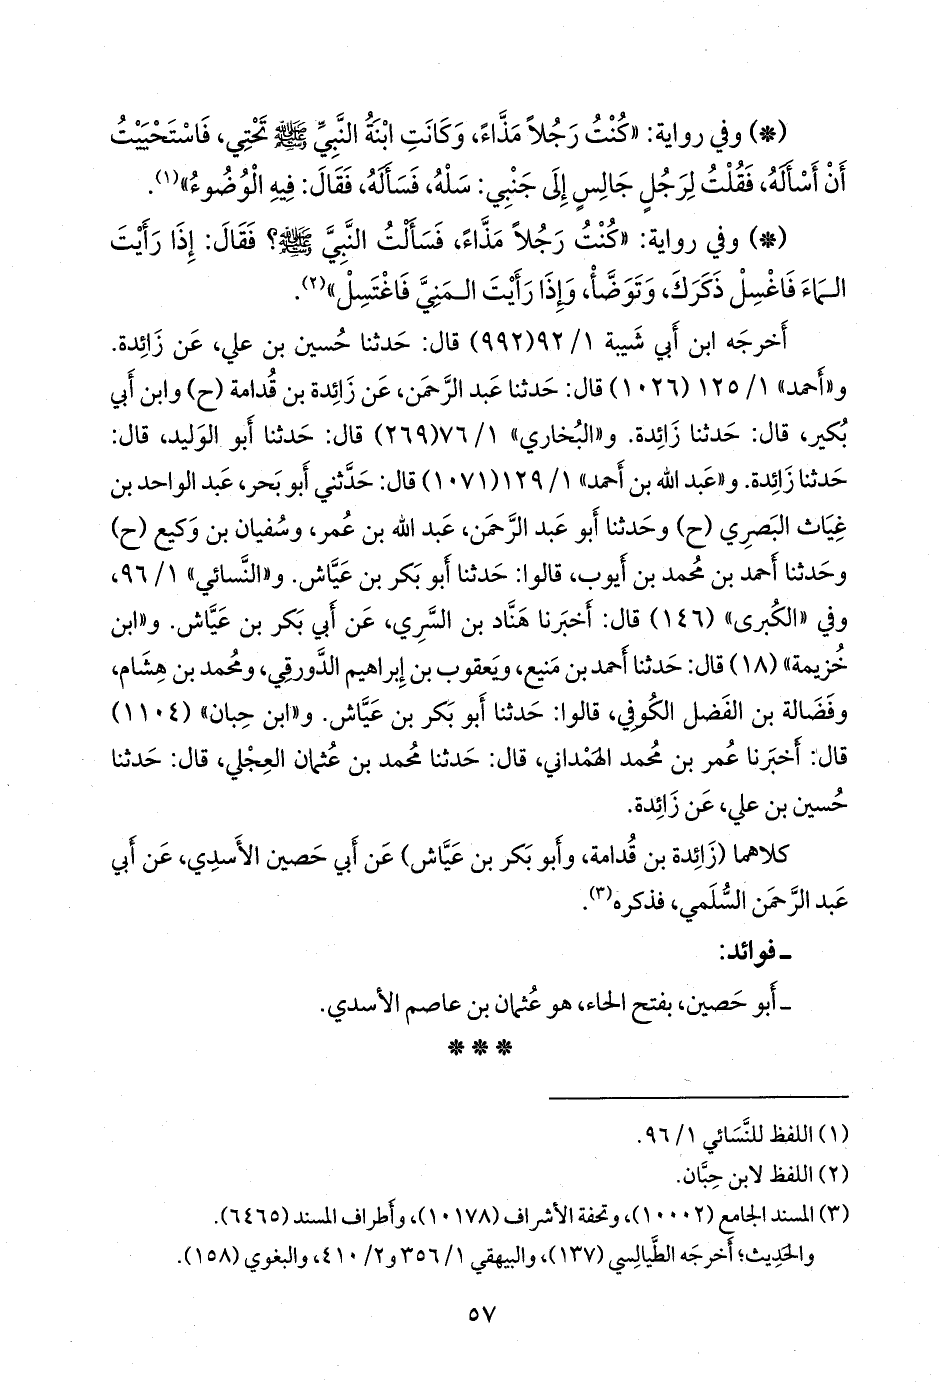 (*) وفي رواية: «كُنْتُ رَجُلاً مَذَّاءً، وَكَانَتِ ابْنَةُ النَّبِيِّ ﷺ تَحْتِي، فَاسْتَحْيَيْتُ
أَنْ أَسْأَلَهُ، فَقُلْتُ لِرَجُلٍ جَالِسٍ إِلَى جَنْبِي: سَلْهُ، فَسَأَلَهُ، فَقَالَ: فِيهِ الْوُضُوءُ»(١).
(*) وفي رواية: «كُنْتُ رَجُلاً مَذَّاءً، فَسَأَلْتُ النَّبِيَّ ﷺ؟ فَقَالَ: إِذَا رَأَيْتَ
الـمَاءَ فَاغْسِلْ ذَكَرَكَ، وَتَوَضَّأْ، وَإِذَا رَأَيْتَ الـمَنِيَّ فَاغْتَسِلْ»(٢).
أَخرجَه ابن أَبي شَيبة ١/ ٩٢(٩٩٢) قال: حَدثنا حُسين بن علي، عَن زَائِدة.
و«أَحمد» ١/ ١٢٥ (١٠٢٦) قال: حَدثنا عَبد الرَّحمَن، عَن زَائِدة بن قُدامة (ح) وابن أَبي
بُكير، قال: حَدثنا زَائِدة. و«البُخاري» ١/ ٧٦(٢٦٩) قال: حَدثنا أَبو الوَليد، قال:
حَدثنا زَائِدة. و«عَبد الله بن أَحمد» ١/ ١٢٩(١٠٧١) قال: حَدَّثني أَبو بَحر، عَبد الواحد بن
غِيَاث البَصرِي (ح) وحَدثنا أَبو عَبد الرَّحمَن، عَبد الله بن عُمر، وسُفيان بن وَكيع (ح)
وحَدثنا أَحمد بن مُحمد بن أَيوب، قالوا: حَدثنا أَبو بَكر بن عَيَّاش. و«النَّسائي» ١/ ٩٦،
وفي «الكُبرى» (١٤٦) قال: أَخبَرنا هَنَّاد بن السَّرِي، عَن أَبي بَكر بن عَيَّاش. و«ابن
خُزيمة» (١٨) قال: حَدثنا أَحمد بن مَنيع، ويَعقوب بن إِبراهيم الدَّورقِي، ومُحمد بن هِشام،
وفَضَالة بن الفَضل الكُوفي، قالوا: حَدثنا أَبو بَكر بن عَيَّاش. و«ابن حِبان» (١١٠٤)
قال: أَخبَرنا عُمر بن مُحمد الهَمْداني، قال: حَدثنا مُحمد بن عُثمان العِجْلي، قال: حَدثنا
حُسين بن علي، عَن زَائِدة.
كلاهما (زَائِدة بن قُدامة، وأَبو بَكر بن عَيَّاش) عَن أَبي حَصين الأَسدِي، عَن أَبي
عَبد الرَّحمَن السُّلَمي، فذكره(٣).
ـ فوائد:
ـ أَبو حَصين، بفتح الحاء، هو عُثمان بن عاصم الأَسدي.
* * *
(١) اللفظ للنَّسَائي ١/ ٩٦.
(٢) اللفظ لابن حِبَّان.
(٣) المسند الجامع (١٠٠٠٢)، وتحفة الأشراف (١٠١٧٨)، وأَطراف المسند (٦٤٦٥).
والحَدِيث؛ أَخرجَه الطَّيالِسي (١٣٧)، والبيهقي ١/ ٣٥٦ و٢/ ٤١٠، والبغوي (١٥٨).
٥٧